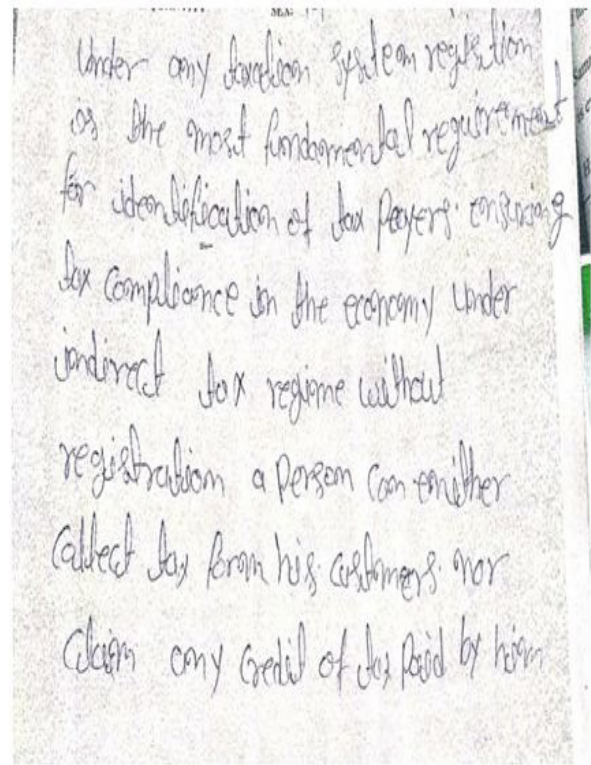 Under any taxation system registtion
is the most fundamental requirement
for identification of tax payers. ensuring
tax compliance in the economy under
indirect tax regime without
registration a person can enither
collect tax from his customers. nor
claim any credit of tax paid by him